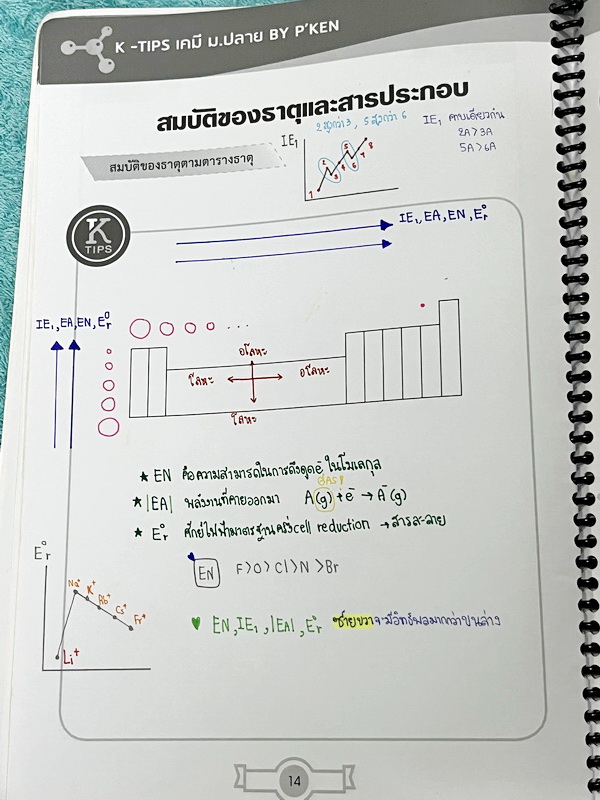 K -TIPS เคมี ม.ปลาย BY P'KEN
สมบัติของธาตุและสารประกอบ
สมบัติของธาตุตามตารางธาตุ
2 สูงกว่า 3, 5 สูงกว่า 6
IE₁
1 2 3 4 5 6 7 8
IE₁ คาบเดียวกัน
2A > 3A
5A > 6A
K
TIPS
IE₁, EA, EN, E°r
IE₁, EA, EN, E°r
...
อโลหะ
โลหะ
อโลหะ
โลหะ
★ EN คือความสามารถในการดึงดูดe⁻ ในโมเลกุล
GAS!
★ |EA| พลังงานที่คายออกมา A(g) + e⁻ → A⁻(g)
★ E°r ศักย์ไฟฟ้ามาตรฐานครึ่งcell reduction → สารละลาย
EN F > O > Cl > N > Br
E°r
Na⁺
K⁺
Rb⁺
Cs⁺
Fr⁺
Li⁺
♥ EN, IE₁, |EA|, E°r ซ้ายขวาจะมีอิทธิพลมากกว่าบนล่าง
14